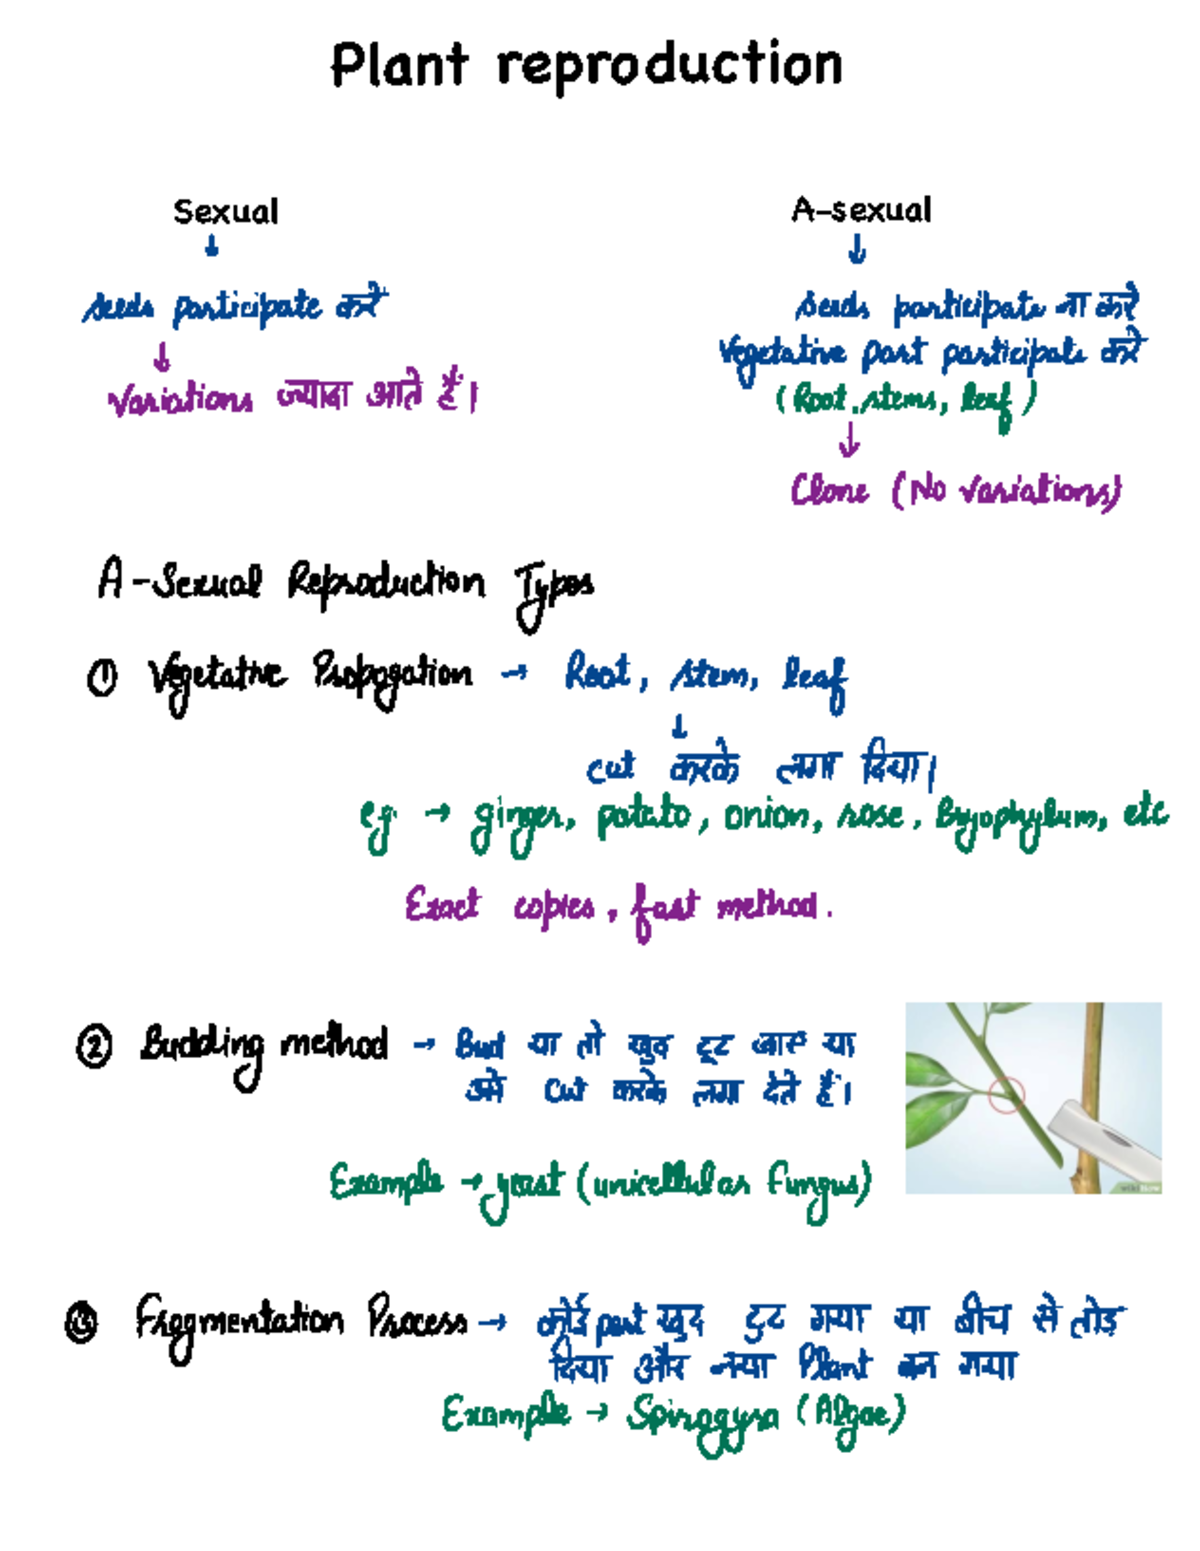 Plant reproduction
Sexual
A-sexual
seeds participate करे
Seeds participate ना करे
Vegetative part participate करे
Variations ज्यादा आते हैं।
(Root, stems, leaf)
Clone (No variations)
A-Sexual Reproduction Types
① Vegetative Propogation → Root, stem, leaf
cut करके लगा दिया।
eg → ginger, potato, onion, rose, Bryophylum, etc
Exact copies, fast method.
② Budding method → Bud या तो खुद टूट जाए या
उसे cut करके लगा देते हैं।
Example → yeast (unicellular fungus)
③ Fragmentation Process → कोई part खुद टुट गया या बीच से तोड़
दिया और नया Plant बन गया
Example → Spirogyra (Algae)